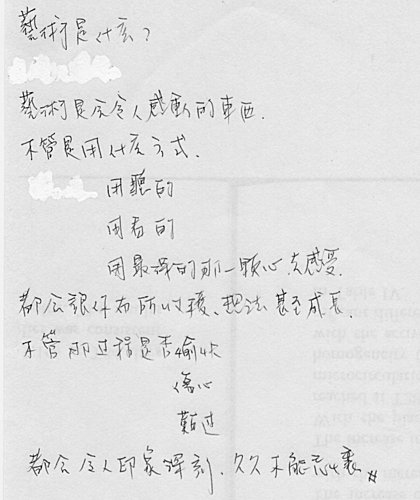 藝術是什庅？
藝術是会令人感動的東西.
不管是用什庅方式.
用聽的
用看的
用最深的那一顆心去感受.
都会讓你有所收穫、想法甚至成長
不管那过程是否愉快
傷心
難过
都会令人印象深刻，久久不能忘懷.